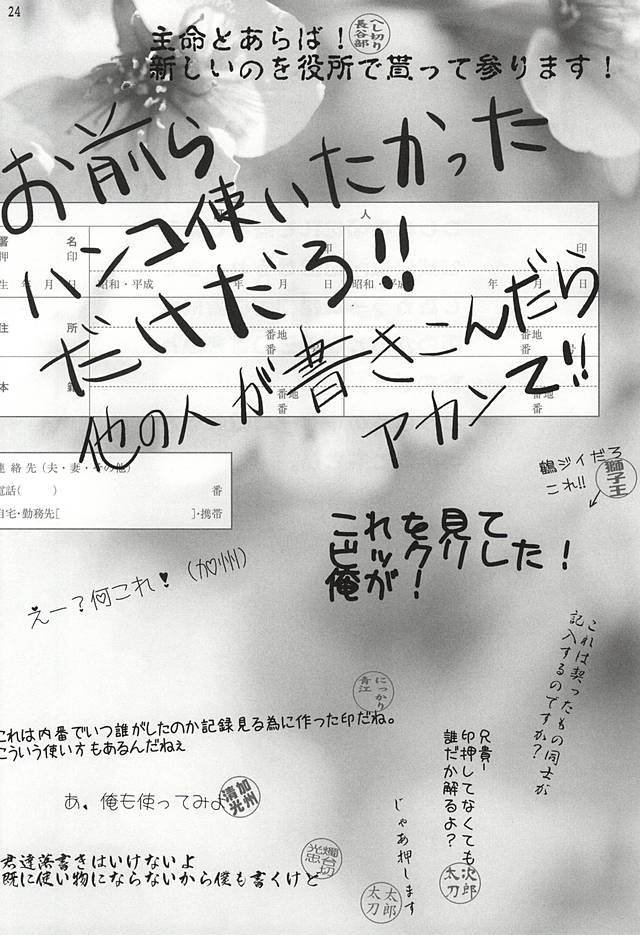 24
主命とあらば！
へし切り
長谷部
新しいのを役所で貰って参ります！
お前ら
ハンコ使いたかった
だけだろ!!
他の人が書きこんだら
アカンて!!
人
署名
押印
印
印
生年月日
昭和・平成 年 月 日
昭和・平成 年 月 日
住所
番地
番 号
番地
番 号
本籍
番地
番
番地
番
連絡先（夫・妻・その他）
電話（ ） 番
自宅・勤務先[ ]・携帯
鶴ジィだろ
これ!!
獅子王
これを見て
ビックリした！
俺が！
えー？何これ♥（加州）
これは契ったもの同士が
記入するのですか？
にっかり
青江
これは内番でいつ誰がしたのか記録見る為に作った印だね。
こういう使い方もあるんだねぇ
兄貴ー
印押してなくても
誰だか解るよ？
次郎
太刀
あ、俺も使ってみよ
加州
清光
じゃあ押します
太郎
太刀
君達落書きはいけないよ
燭台切
光忠
既に使い物にならないから僕も書くけど